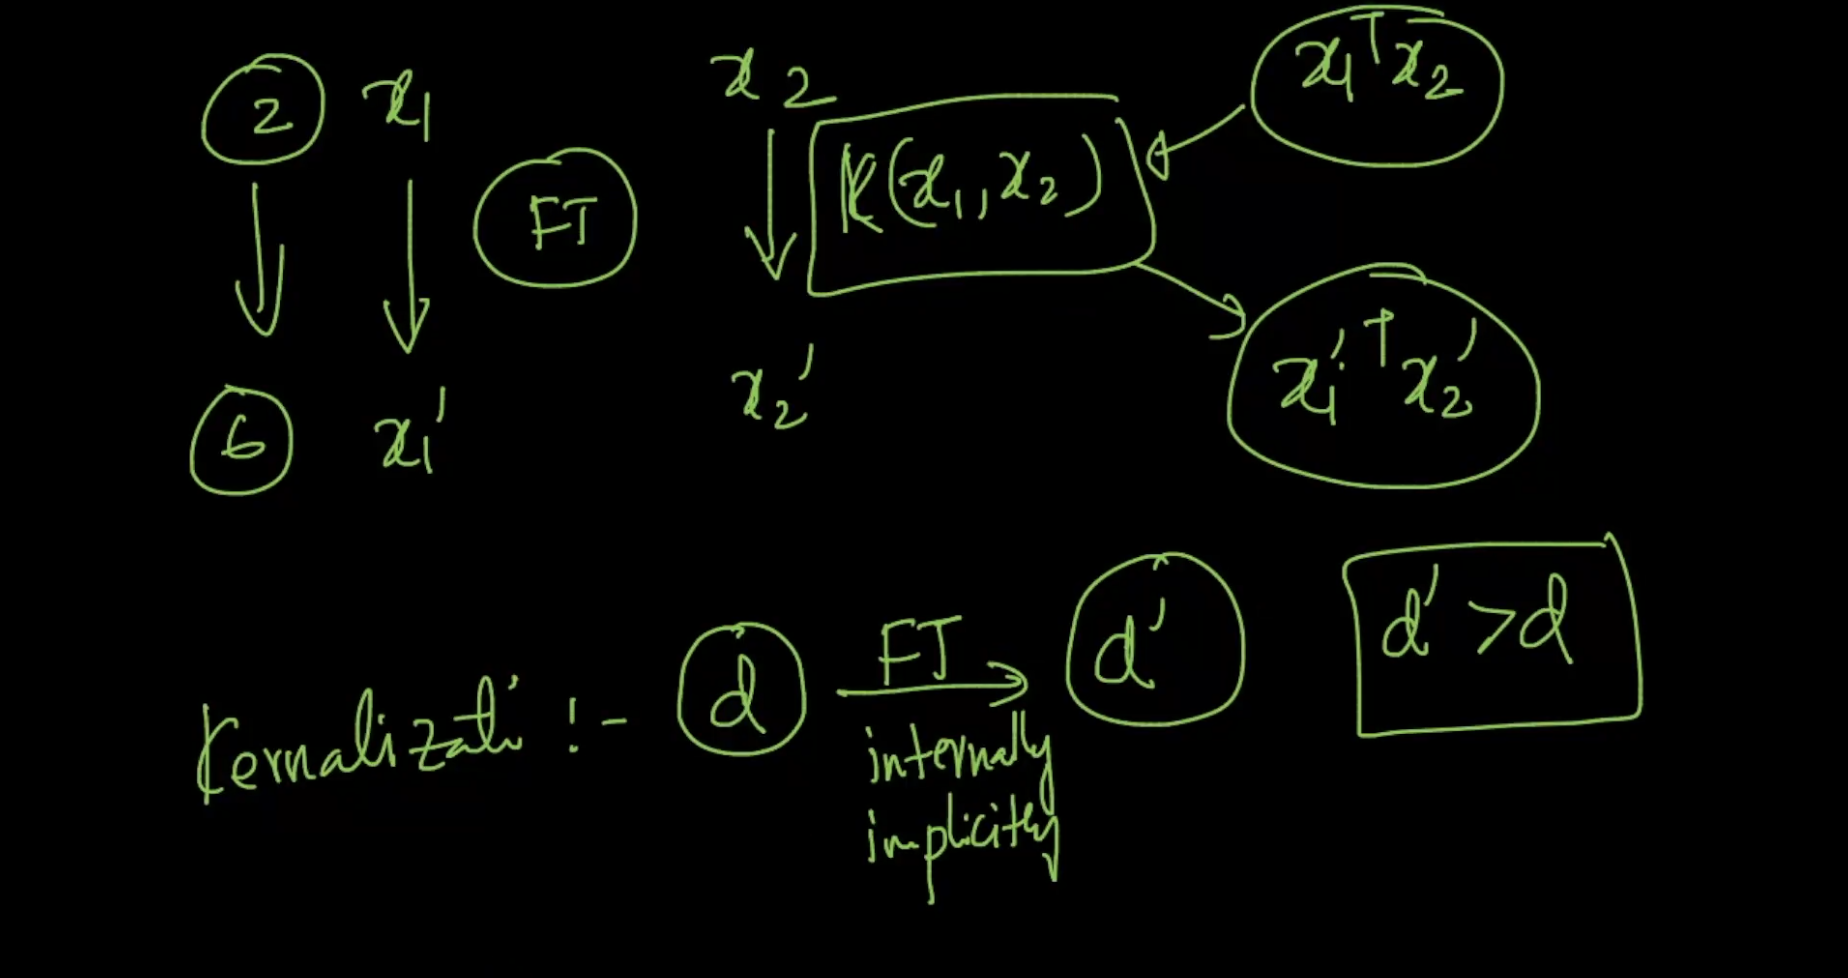 2 x₁ x₂ x₁ᵀx₂
FT K(x₁, x₂)
6 x₁' x₂' x₁'ᵀx₂'
Kernalizati :- d FT d' d' > d
internally
implicitly